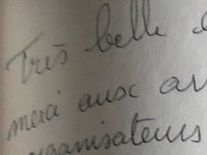 Très belle
merci aux
organisateurs